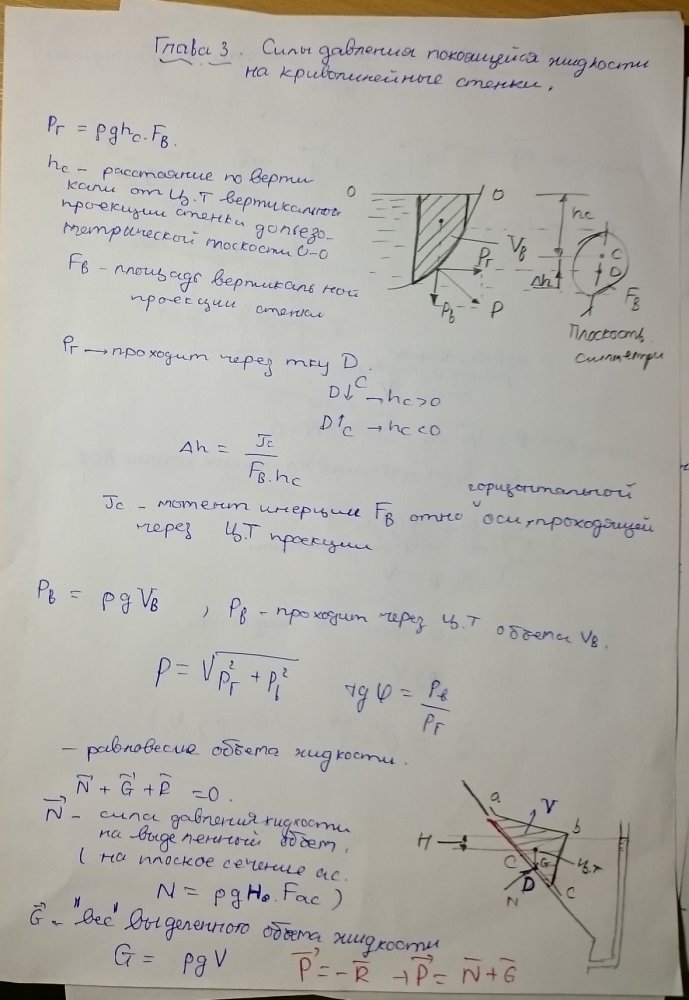 Глава 3. Силы давления покоящейся жидкости
на криволинейные стенки.
Pг = ρghc·Fв.
hc - расстояние по верти
кали от Ц.Т вертикальной
проекции стенки до пьезо-
метрической плоскости О-О
Fв - площадь вертикальной
проекции стенки
О О
hc
Vв
Pг
C
D
Δh
Pв
P
Fв
Плоскость
симметри
Pг → проходит через тку D.
D↓C → hc>0
D↑C → hc<0
Δh = Jc / Fв·hc
горизонтальной
Jc - момент инерции Fв отно оси, проходящей
через Ц.Т проекции
Pв = ρgVв , Pв - проходит через ц.т объема Vв.
P = √Pг² + Pв² tgφ = Pв / Pг
- равновесие объема жидкости.
N + G + R = 0.
N - сила давления жидкости
на выделенный объем,
( на плоское сечение ас.
N = ρgH₀·Fac )
G - "вес" выделенного объема жидкости
G = ρgV
P = -R → P = N + G
a
V
b
H
ц.т
C
G
D
C
N